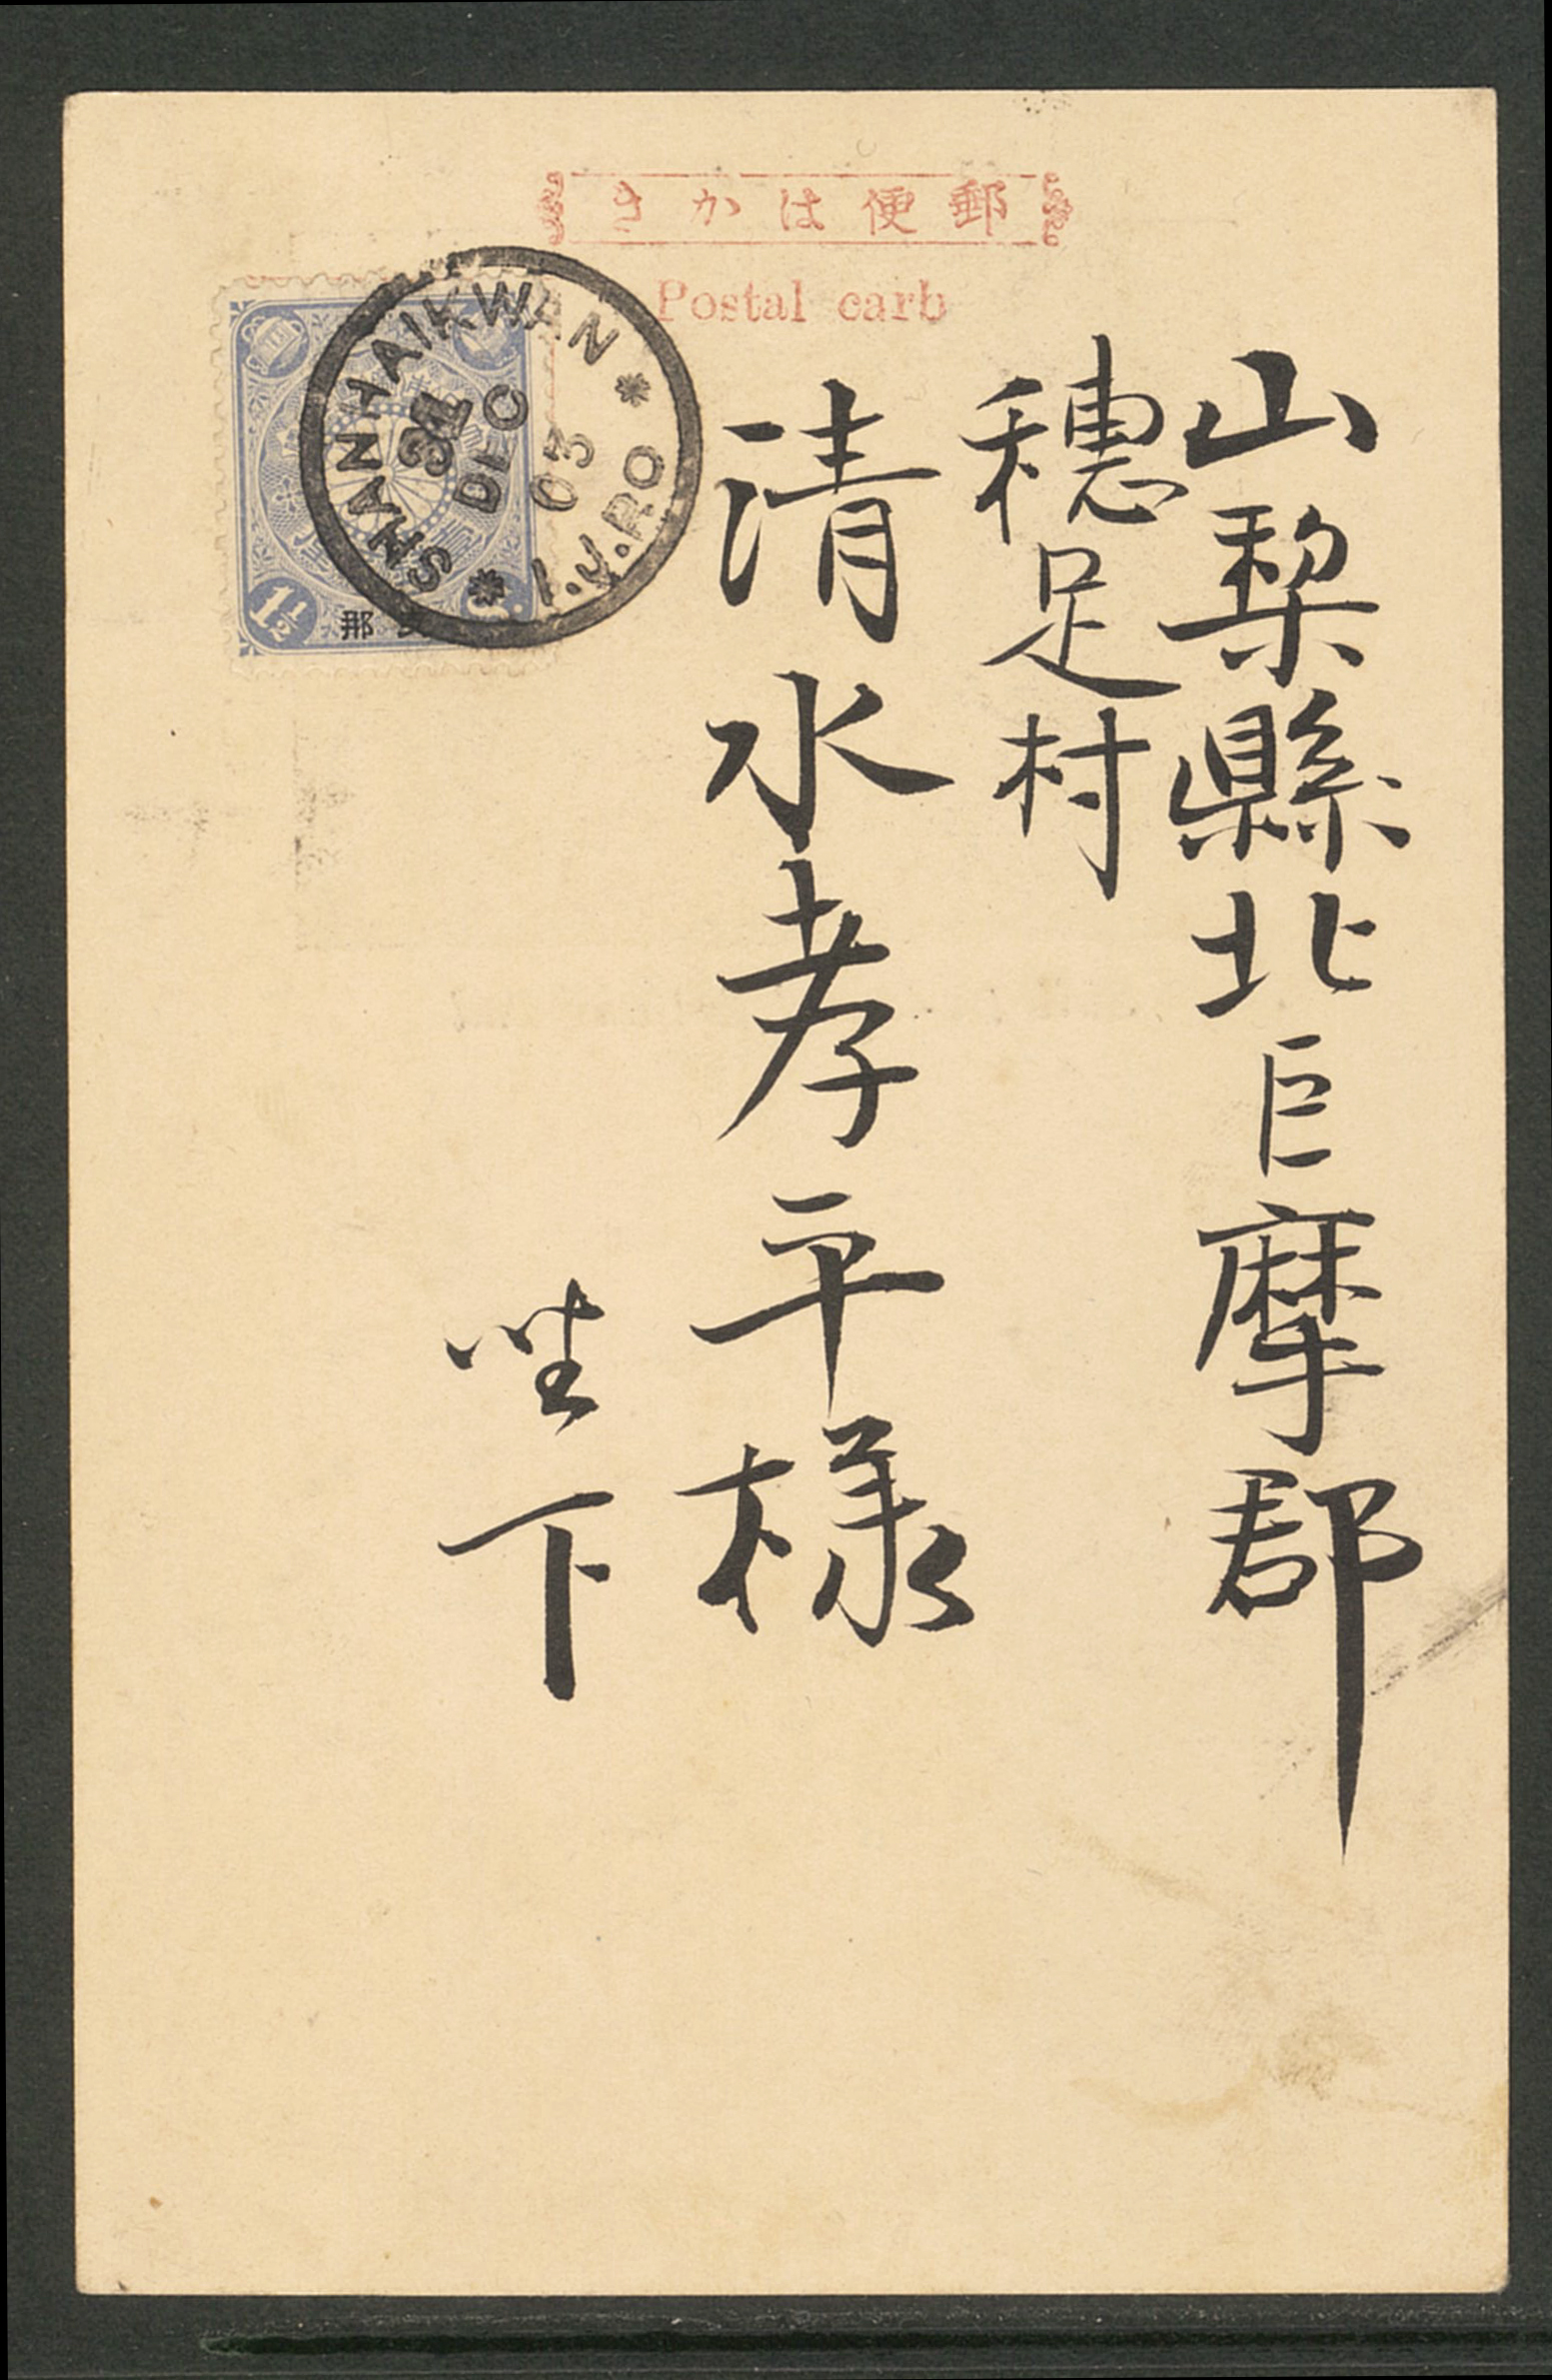 きかは便郵
Postal carb
SHANHAIKWAN
31
DEC
03
I.J.P.O
1½
那
山梨縣北巨摩郡
穗足村
清水孝平様
坐下